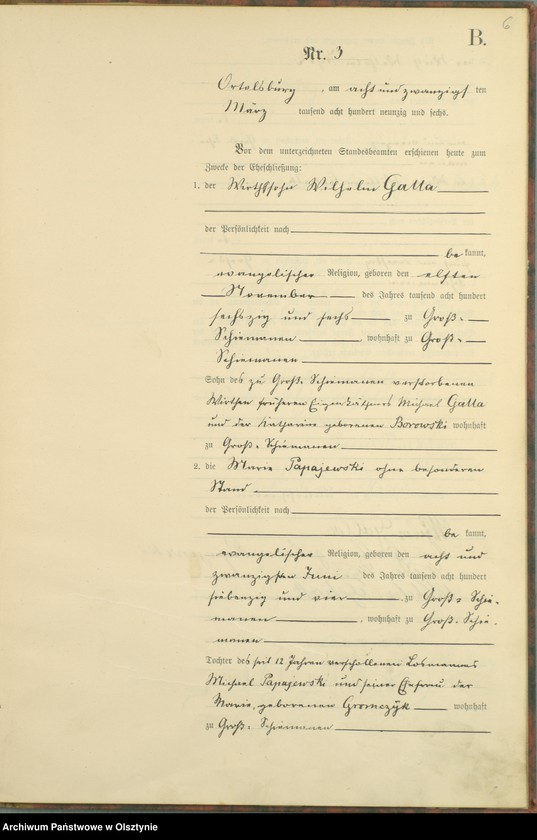 6
B.
Nr. 3
Ortelsburg, am acht und zwanzigsten
März tausend acht hundert neunzig und sechs.
Vor dem unterzeichneten Standesbeamten erschienen heute zum
Zwecke der Eheschließung:
1. der Wirthssohn Wilhelm Galla
der Persönlichkeit nach
be kannt,
evangelischer Religion, geboren den elften
November des Jahres tausend acht hundert
sechszig und sechs zu Groß-
Schiemanen, wohnhaft zu Groß-
Schiemanen
Sohn des zu Groß-Schiemanen verstorbenen
Wirthen früheren Eigenkäthners Michael Galla
und der Katharine geborenen Borowski wohnhaft
zu Groß-Schiemanen
2. die Marie Papajewski ohne besonderen
Stand
der Persönlichkeit nach
be kannt,
evangelischer Religion, geboren den acht und
zwanzigsten Juni des Jahres tausend acht hundert
siebenzig und vier, zu Groß-Schie-
manen, wohnhaft zu Groß-Schie-
manen
Tochter des seit 12 Jahren verschollenen Losmannes
Michael Papajewski und seiner Ehefrau der
Marie, geborenen Gromczyk wohnhaft
zu Groß-Schiemanen
Archiwum Państwowe w Olsztynie